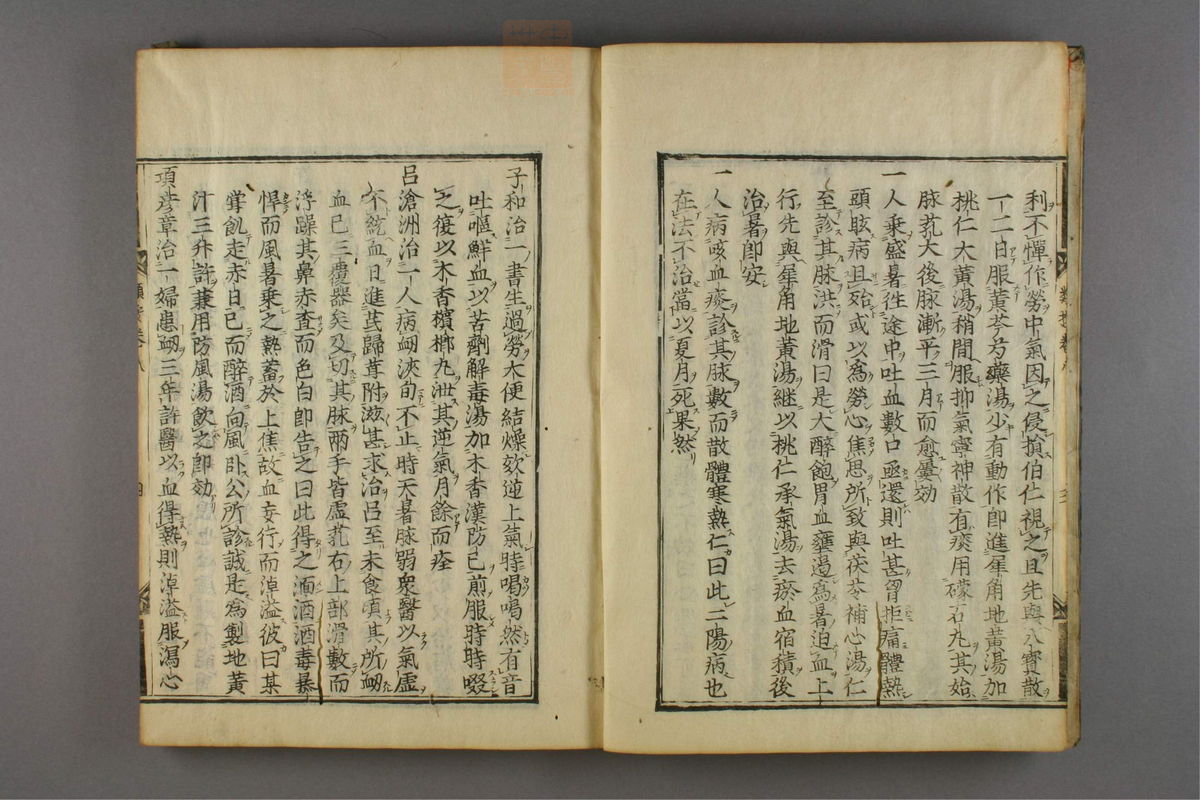 利不憚作勞中氣因之侵損伯仁視之且先與八寶散
一二日服黃芩芍藥湯少有動作即進犀角地黃湯加
桃仁大黃湯稍間服抑氣寧神散有痰用礞石丸其始
脉芤大後脉漸平三月而愈屢効
一人乗盛暑徃途中吐血數口亟還則吐甚胷拒痛體熱
頭眩病且殆或以為勞心焦思所致與茯苓補心湯仁
至診其脉洪而滑曰是大醉飽胃血壅遏為暑迫血上
行先與犀角地黃湯継以桃仁承氣湯去瘀血宿積後
治暑即安
一人病咳血痰診其脉數而散體寒熱仁曰此二陽病也
在法不治當以夏月死果然
子和治一書生過勞大便結燥欬逆上氣時喝喝然有音
吐嘔鮮血以苦劑解毒湯加木香漢防己煎服時時啜
之復以木香檳榔丸泄其逆氣月餘而痊
呂滄洲治一人病衂浹旬不止時天暑脉弱衆醫以氣虛
不統血日進芪歸茸附滋甚求治呂至未食頃其所衂
血已三覆器矣及切其脉兩手皆虛芤右上部滑數而
浮躁其鼻赤査而色白即告之曰此得之湎酒酒毒暴
悍而風暑乗之熱蓄於上焦故血妄行而淖溢彼曰某
嘗飢走赤日已而醉酒向風卧公所診誠是為製地黃
汁三升許兼用防風湯飲之即効
項彦章治一婦患衂三年許醫以血得熱則淖溢服瀉心